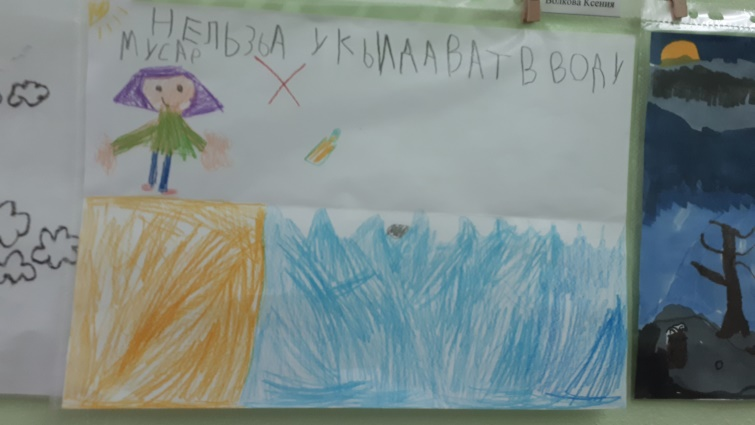 Волкова Ксения
НЕЛЬЗЬА УКЬИДАВАТ В ВОДУ
МУСАР